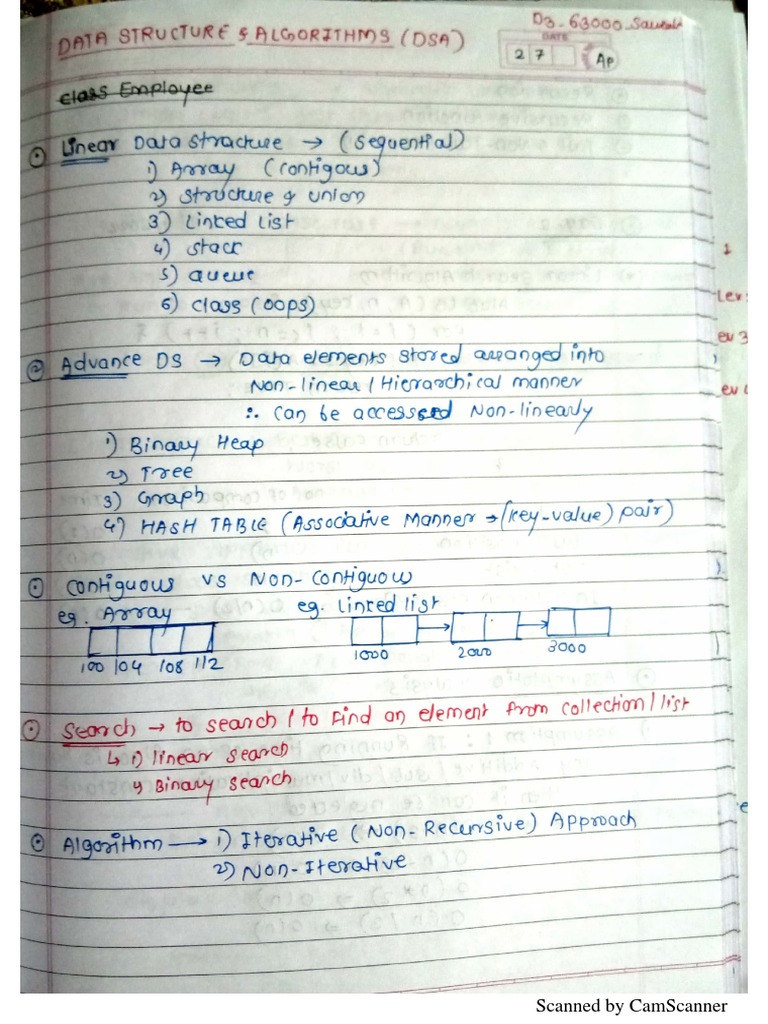 D3-63000_Saurabh
DATA STRUCTURE & ALGORITHMS (DSA)
DATE
27 Ap
class Employee
Linear Data Structure → (Sequential)
1) Array (contigous)
2) Structure & union
3) Linked list
4) Stack
5) Queue
6) Class (oops)
Advance DS → Data elements stored arranged into
Non-linear / Hierarchical manner
∴ can be accessed Non-linearly
1) Binary Heap
2) Tree
3) Graph
4) HASH TABLE (Associative Manner → (key-value) pair)
Contiguous VS Non-Contiguous
eg. Array eg. Linked list
100 104 108 112 1000 2000 3000
Search → to search / to Find an element from collection / list
↳ 1) linear search
2) Binary search
Algorithm → 1) Iterative (Non-Recursive) Approach
2) Non-Iterative
Scanned by CamScanner